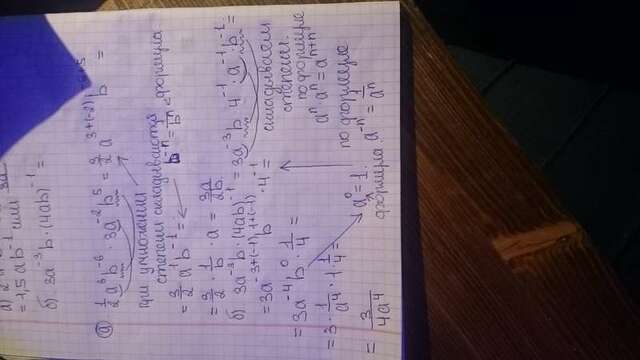 а) 2
= 1,5 a b⁻¹ или 3a
б) 3a⁻³b · (4ab)⁻¹ =
а) 1/2 a³ b⁻⁶ · 3a⁻² b⁵ = 3/2 a³⁺⁽⁻²⁾ b⁻⁶⁺⁵ =
при умножении
степени складываются
= 3/2 a¹ b⁻¹ = b⁻ⁿ = 1/bⁿ формула
= 3/2 · 1/b · a = 3a/2b
б) 3a⁻³b · (4ab)⁻¹ = 3a⁻³ b · 4⁻¹ · a⁻¹ · b⁻¹ =
= 3a⁻³⁺⁽⁻¹⁾ b¹⁺⁽⁻¹⁾ · 4⁻¹ складываем
степени.
= 3a⁻⁴ b⁰ · 1/4 = по формуле
aⁿ aⁿ = aⁿ⁺ⁿ
= 3 · 1/a⁴ · 1 · 1/4 = по формуле
a⁰ = 1. a⁻ⁿ = 1/aⁿ
= 3/4a⁴ формула